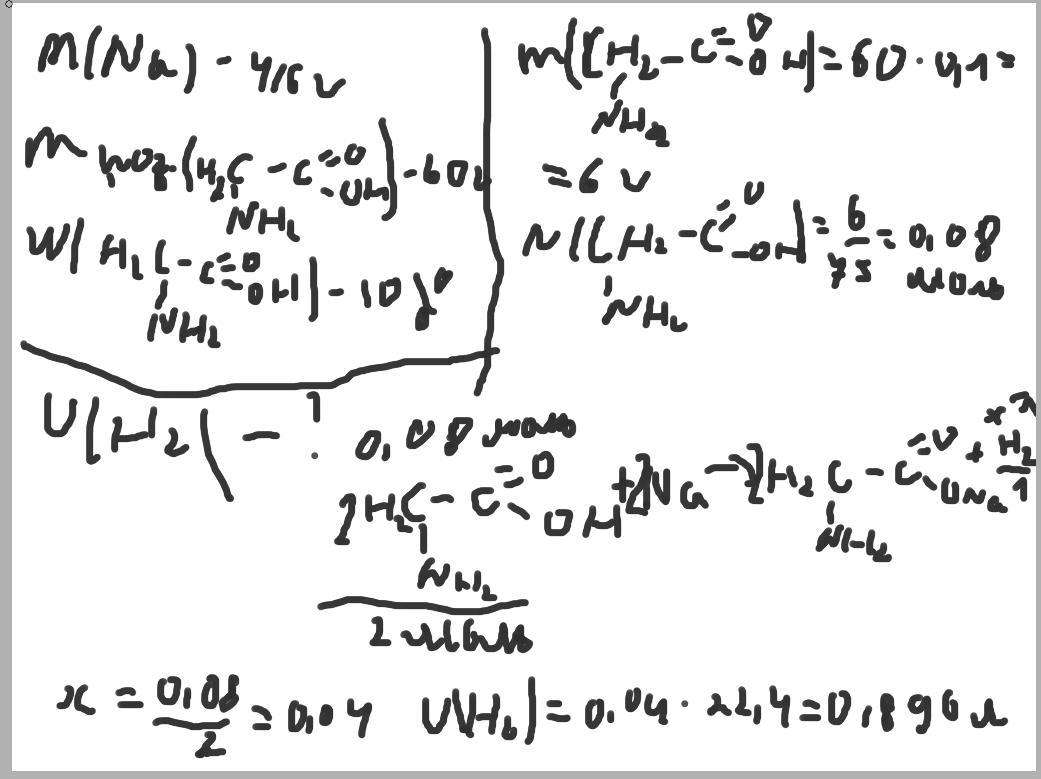 m(Na) - 4,6 г
m р-ра (H₂C - C =O -OH) - 60 г
NH₂
W(H₂C - C =O OH) - 10 %
NH₂
V(H₂) - ?
m(CH₂ - C =O -OH) = 60 · 0,1 =
NH₂
= 6 г
n(CH₂ - C =O -OH) = 6/75 = 0,08
NH₂ моль
0,08 моль x
2H₂C - C =O OH + 2Na → 2H₂C - C =O ONa + H₂
NH₂ NH₂ 1
2 моль
x = 0,08/2 = 0,04 V(H₂) = 0,04 · 22,4 = 0,896 л